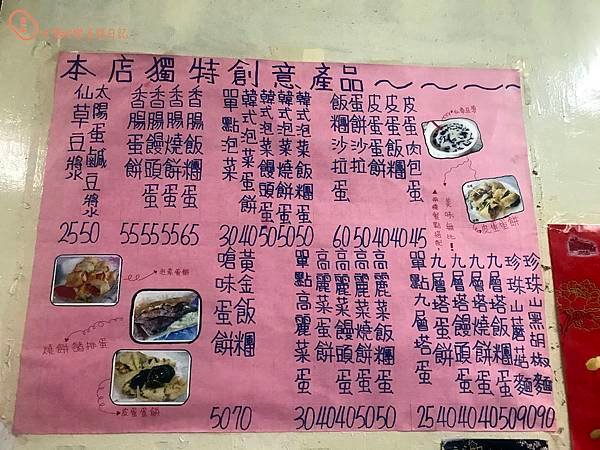 本店獨特創意產品～～～～～
皮蛋肉包蛋 45
皮蛋飯糰 40
皮蛋蛋餅 40
蛋餅沙拉 50
飯糰沙拉蛋 60
韓式泡菜飯糰蛋 50
韓式泡菜燒餅蛋 50
韓式泡菜饅頭蛋 50
韓式泡菜蛋餅 40
單點泡菜 30
香腸飯糰蛋 65
香腸燒餅蛋 55
香腸饅頭蛋 55
香腸蛋餅 55
太陽蛋鹹豆漿 50
仙草豆漿 25
美味無比！
皮蛋蛋餅
珍珠山黑胡椒麵 90
珍珠山蘑菇麵 90
九層塔飯糰蛋 50
九層塔燒餅蛋 40
九層塔饅頭蛋 40
九層塔蛋餅 40
單點九層塔蛋 25
高麗菜飯糰蛋 50
高麗菜燒餅蛋 50
高麗菜饅頭蛋 40
高麗菜蛋餅 40
單點高麗菜蛋 30
黃金飯糰 70
嗆味蛋餅 50
泡菜蛋餅
燒餅豬排蛋
皮蛋蛋餅